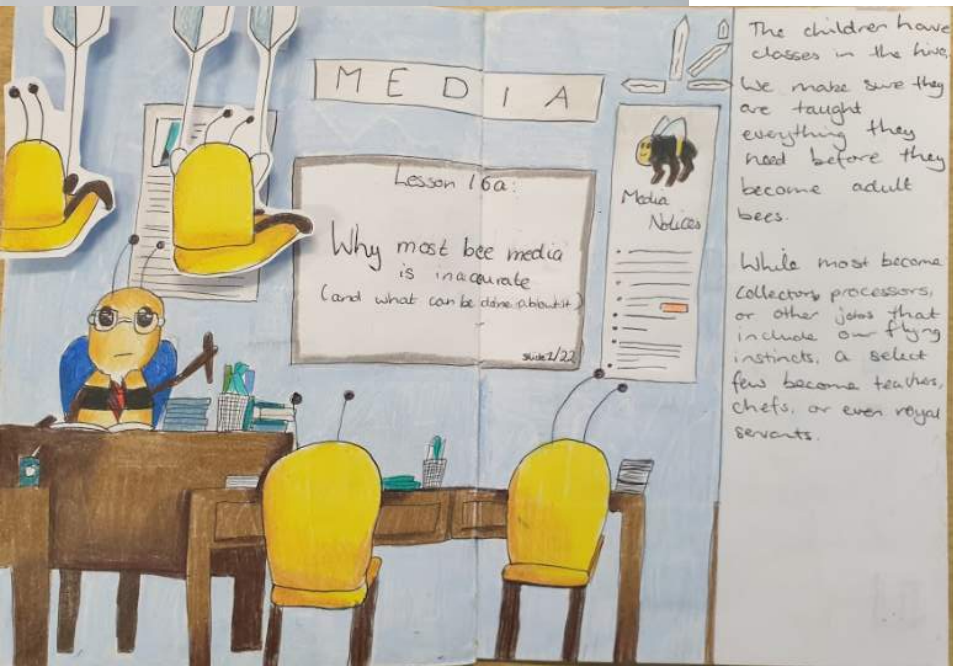 MEDIA
Lesson 16a:
Why most bee media
is inaccurate
(and what can be done about it)
slide 1/22
Media
Notices
The children have
classes in the hive.
We make sure they
are taught
everything they
need before they
become adult
bees.
While most become
collectors, processors,
or other jobs that
include our flying
instincts, a select
few become teachers,
chefs, or even royal
servants.